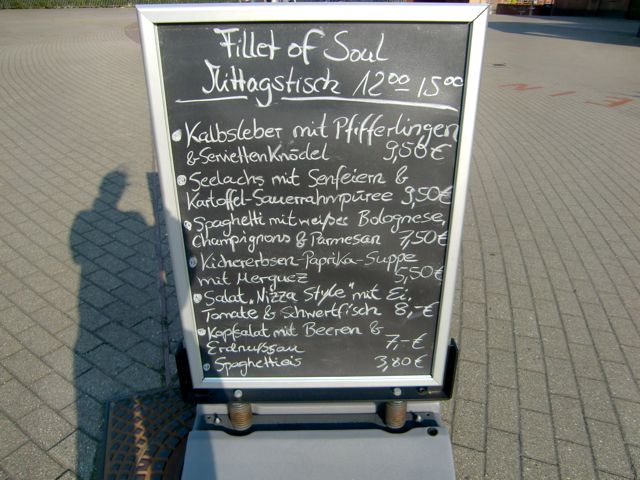 Fillet of Soul
Mittagstisch 12⁰⁰ – 15⁰⁰
• Kalbsleber mit Pfifferlingen
& Serviettenknödel 9,50 €
• Seelachs mit Senfeiern &
Kartoffel-Sauerrahmpüree 9,50 €
• Spaghetti mit weißer Bolognese,
Champignons & Parmesan 7,50 €
• Kichererbsen-Paprika-Suppe
mit Merguez 5,50 €
• Salat „Nizza Style" mit Ei,
Tomate & Schwertfisch 8,- €
• Kopfsalat mit Beeren &
7,- €
• Spaghettieis 3,80 €
EIN